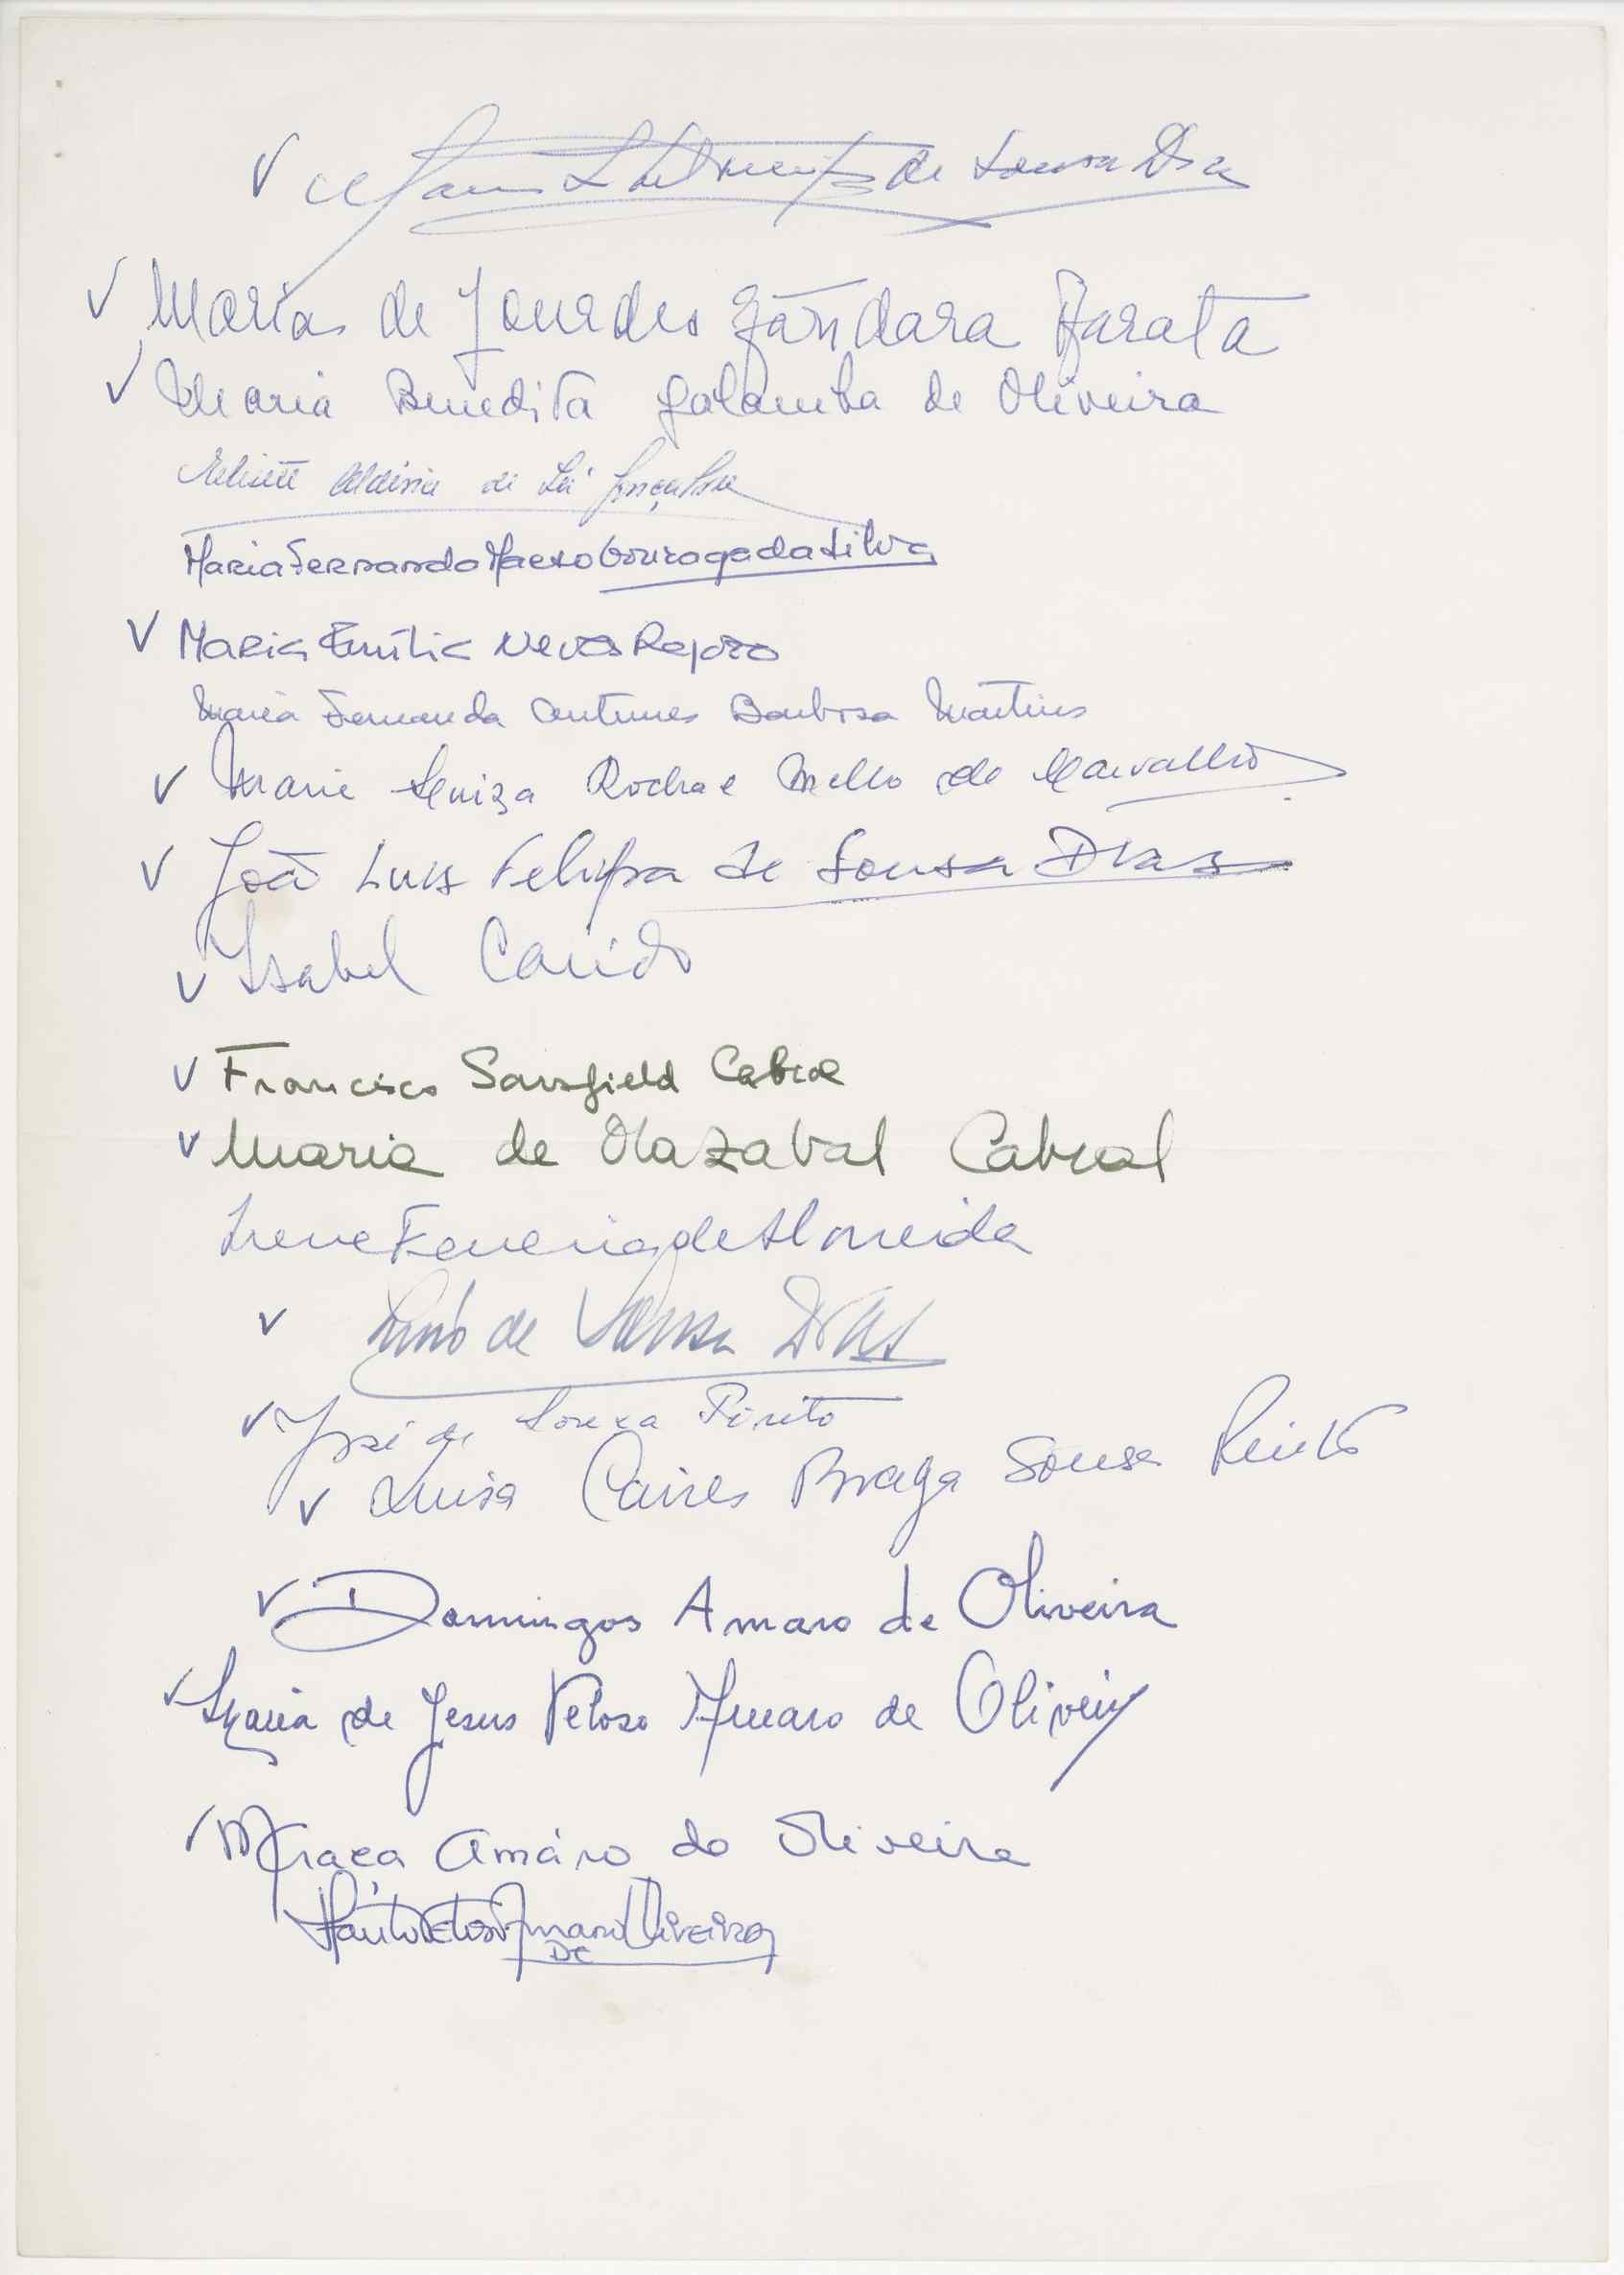 de Sousa Dias
Maria de Lourdes Gândara Barata
Maria Benedita Galamba de Oliveira
de Sá Gonçalves
Maria Fernanda da Silva
Maria Emília Neves Raposo
Maria Fernanda Antunes Barbosa Martins
Maria Luiza Rocha e Mello de Carvalho
João Luis Felipa de Sousa Dias
Isabel Carido
Francisco Sarsfield Cabral
Maria de Olazabal Cabral
Irene Ferreira de Almeida
de Sousa Dias
José de Sousa Pinto
Luisa Caires Braga Sousa Pinto
Domingos Amaro de Oliveira
Maria de Jesus Veloso Amaro de Oliveira
M Graça Amáro de Oliveira
Veloso Amaro Oliveira
DE